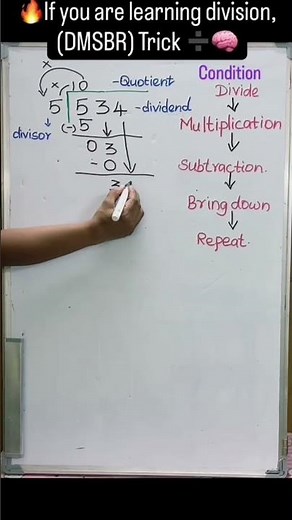 🔥If you are learning division,
(DMSBR) Trick ➗🧠
x
x 10 -Quotient
5 534 -dividend
divisor (-) 5
03
- 0
3
Condition
Divide
Multiplication
Subtraction.
Bring down
Repeat.